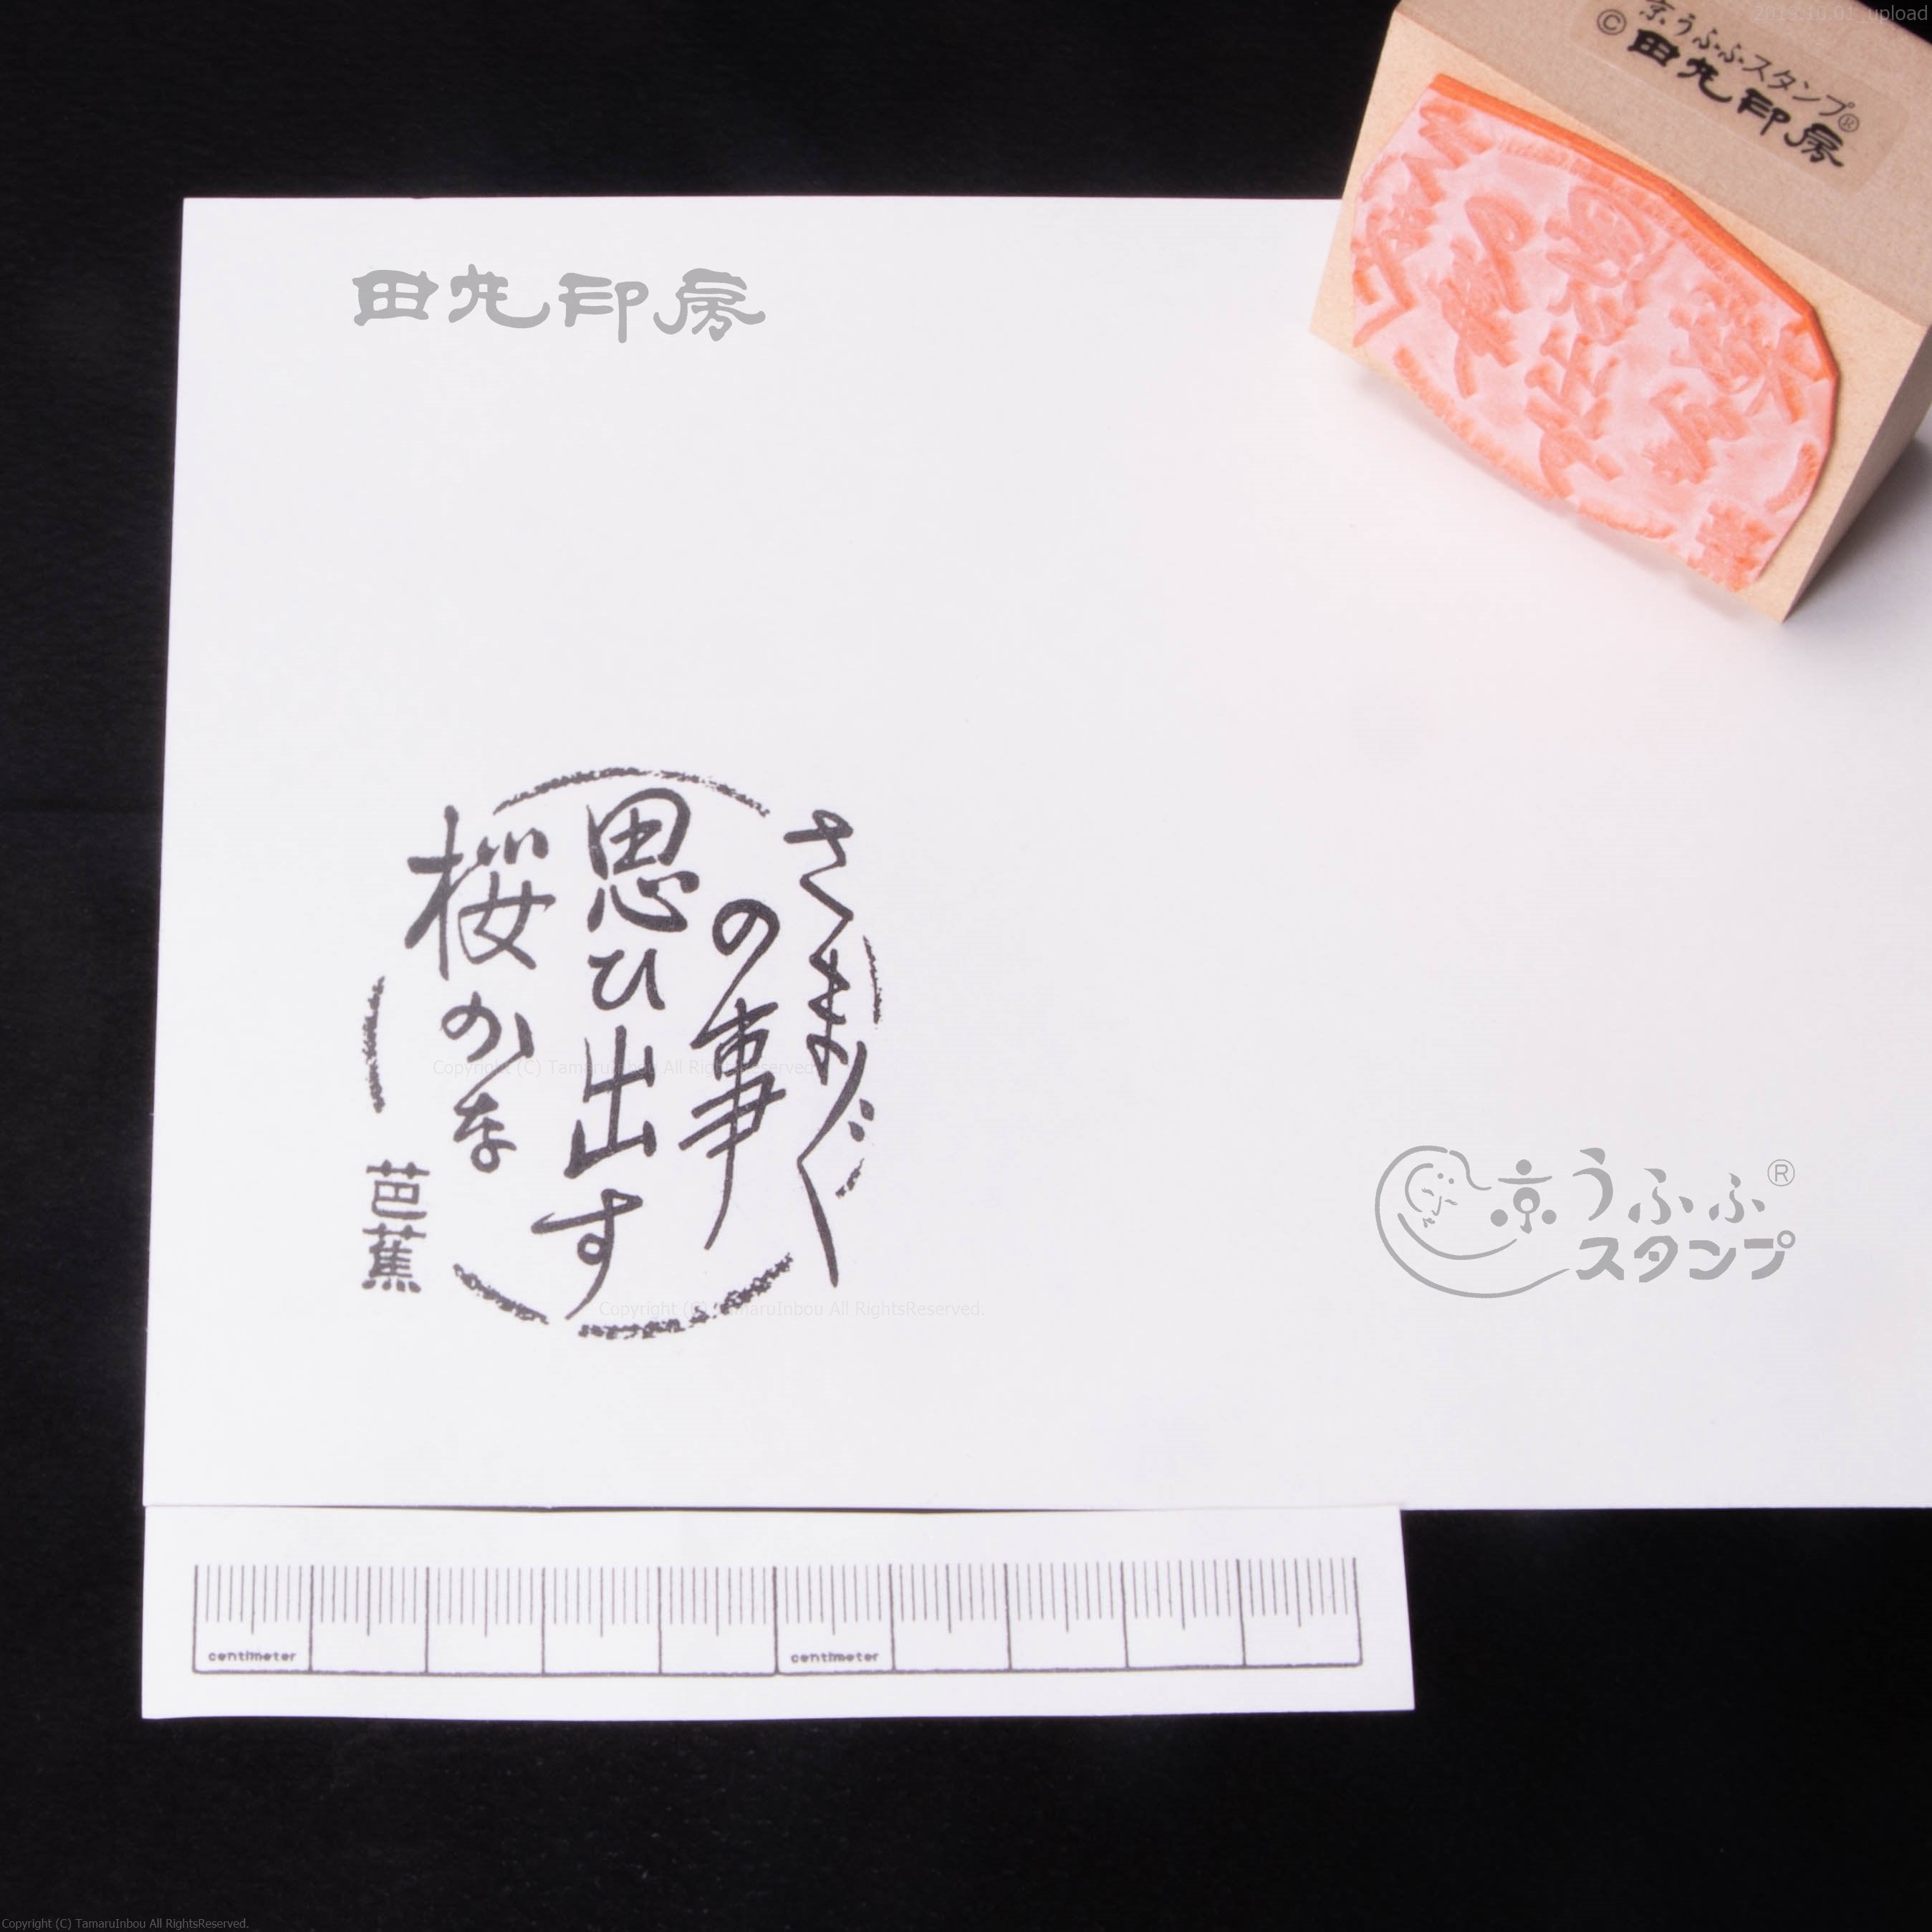 2019.10.01_upload
京うふふスタンプ®
©田丸印房
田丸印房
さまざま〲
の事
思ひ出す
桜かな
芭蕉
Copyright (C) TamaruInbou All RightsReserved.
京うふふ®
スタンプ
Copyright (C) TamaruInbou All RightsReserved.
centimeter
centimeter
Copyright (C) TamaruInbou All RightsReserved.